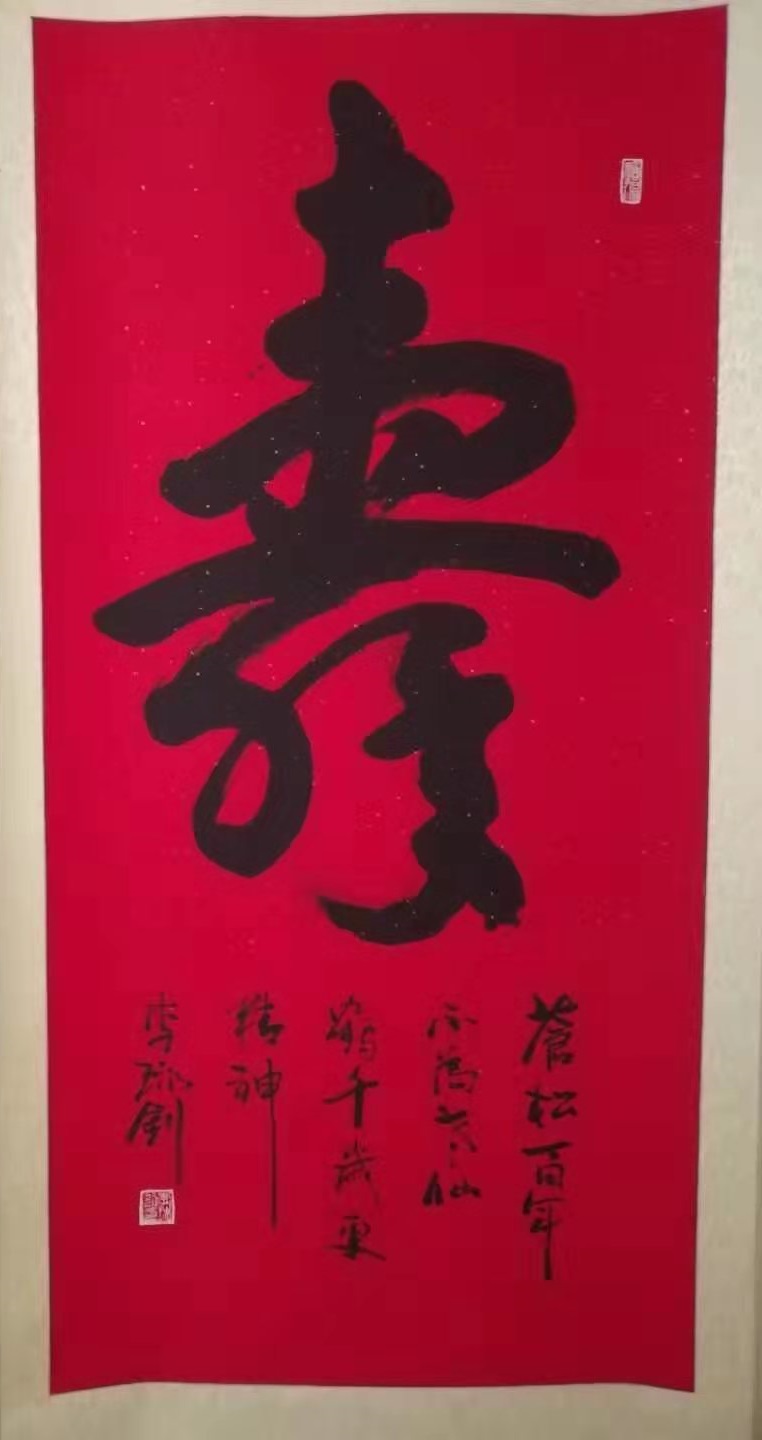 壽
蒼松百年
不為老仙
鶴千歲更
精神
李